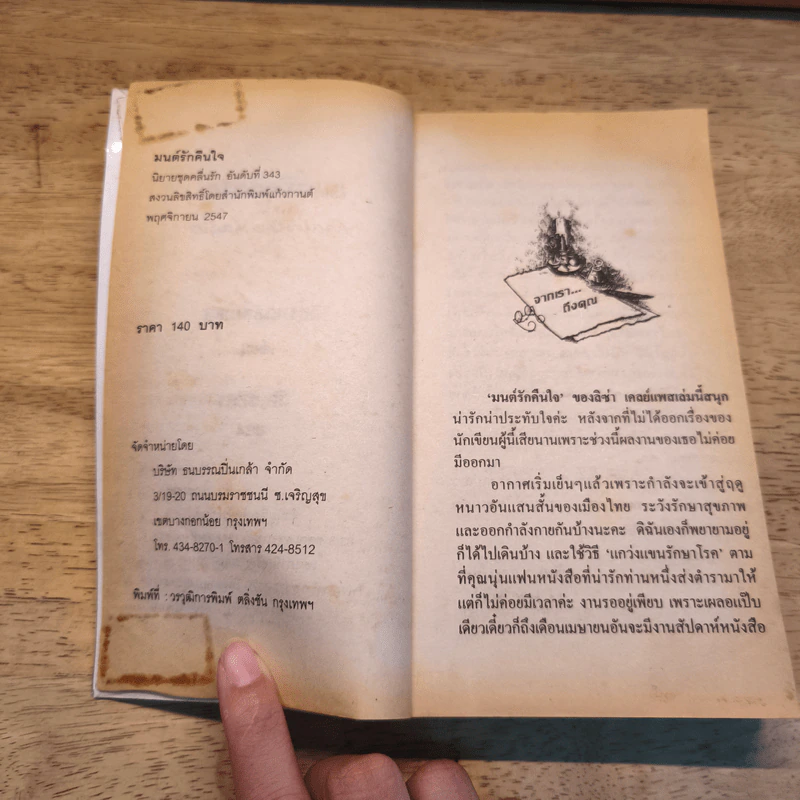 มนต์รักคืนใจ
นิยายชุดคลื่นรัก อันดับที่ 343
สงวนลิขสิทธิ์โดยสำนักพิมพ์แก้วกานต์
พฤศจิกายน 2547
ราคา 140 บาท
จัดจำหน่ายโดย
บริษัท ธนบรรณปิ่นเกล้า จำกัด
3/19-20 ถนนบรมราชชนนี ซ.เจริญสุข
เขตบางกอกน้อย กรุงเทพฯ
โทร. 434-8270-1 โทรสาร 424-8512
พิมพ์ที่ : วรวุฒิการพิมพ์ ตลิ่งชัน กรุงเทพฯ
จากเรา...
ถึงคุณ
'มนต์รักคืนใจ' ของลิซ่า เคลย์แพสเล่มนี้สนุก
น่ารักน่าประทับใจค่ะ หลังจากที่ไม่ได้ออกเรื่องของ
นักเขียนผู้นี้เสียนานเพราะช่วงนี้ผลงานของเธอไม่ค่อย
มีออกมา
อากาศเริ่มเย็นๆแล้วเพราะกำลังจะเข้าสู่ฤดู
หนาวอันแสนสั้นของเมืองไทย ระวังรักษาสุขภาพ
และออกกำลังกายกันบ้างนะคะ ดิฉันเองก็พยายามอยู่
ก็ได้ไปเดินบ้าง และใช้วิธี 'แกว่งแขนรักษาโรค' ตาม
ที่คุณนุ่นแฟนหนังสือที่น่ารักท่านหนึ่งส่งตำรามาให้
แต่ก็ไม่ค่อยมีเวลาค่ะ งานรออยู่เพียบ เพราะเผลอแป๊บ
เดียวเดี๋ยวก็ถึงเดือนเมษายนอันจะมีงานสัปดาห์หนังสือ